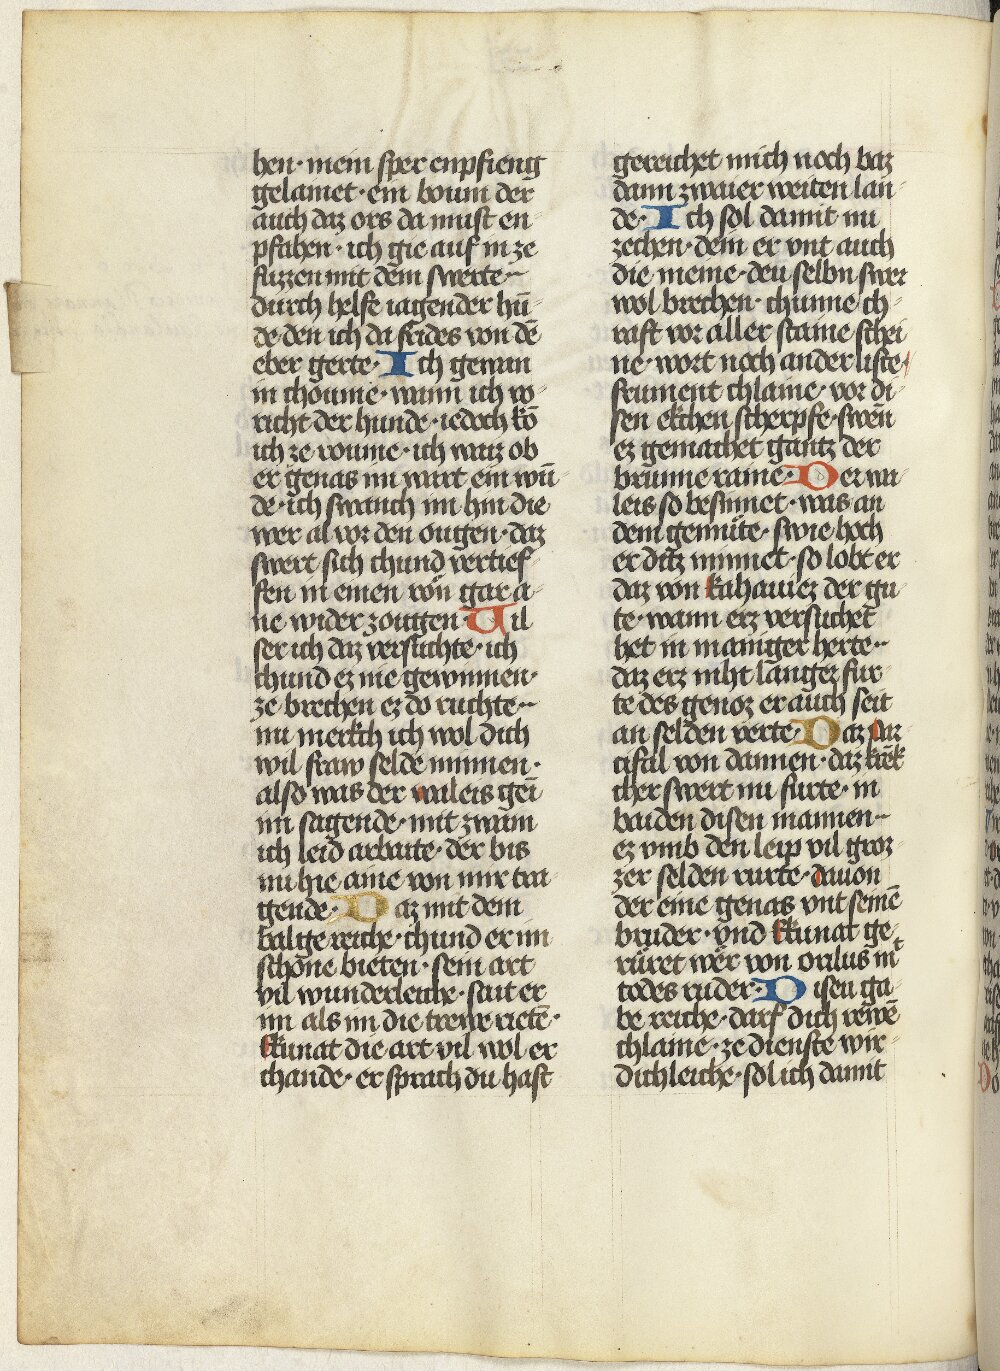 hen · mein sper enpfieng
gelainet · ein boum der
auch daz ors da must en-
pfahen · ich gie auf in ze
fuzzen mit dem swerte ·-
durch helfe iagender hū-
de · den ich da frides von dē
eber gerte · Ich genan
in choume · wann ich vo-
richt der hunde · iedoch kō
ich ze roume · ich waiz ob
er genas im wart ein wū-
de · ich swanch im hin die
wer al vor den ougen · daz
swert sich chund vertief-
fen in einen rön gar a-
ne wider zougen · Vil
ser ich daz versuchte · ich
chund ez nie gewinnen ·
ze brechen ez do ruchte ·-
nu merkch ich wol dich
wil fraw selde minnen ·
also was der waleis gēi
im sagende · mit zwaīn
ich leid arbaite · der bis
nu hie aine von mir tra-
gende · Daz mit dem
balge reiche · chund er im
schöne bieten · sein art
vil wunderleiche · sait er
im als im die trewe rietē ·
kkunat die art vil wol er
chande · er sprach du hast
gereichet mich noch baz
dann zwaier weiten lan-
de · Ich sol damit nu
zechen · dem er vnt auch
die meine · deu selbn swer
wol brechen · chunne ch-
raft vor aller staine schei-
ne · wort noch ander liste
frument chlaine · vor di-
sen ekchen scherpfe · swēn
ez gemachet gantz der
brunne raine · Der wa-
leis so besinnet · was an
dem gemüte · swie hoch
er ditz minnet · so lobt er
daz von kahauiez der gu-
te · wann erz versuchet
het in maniger herte ·-
daz erz niht langez fur-
te des genoz er auch seit
an selden verte · Daz par
cifal von dannen · daz krēk
cher swert nu furte · in
baiden disen mannen ·-
ez vmb den leip vil groz-
zer selden rurte · dauon
der eine genas vnt seinē
bruder · vnd kkunat ge-
rüret wer von orilus mt
todes ruder · Disen ga-
be reiche · darf dich rewē
chlaine · ze dienste wir-
dichleiche · sol ich damit